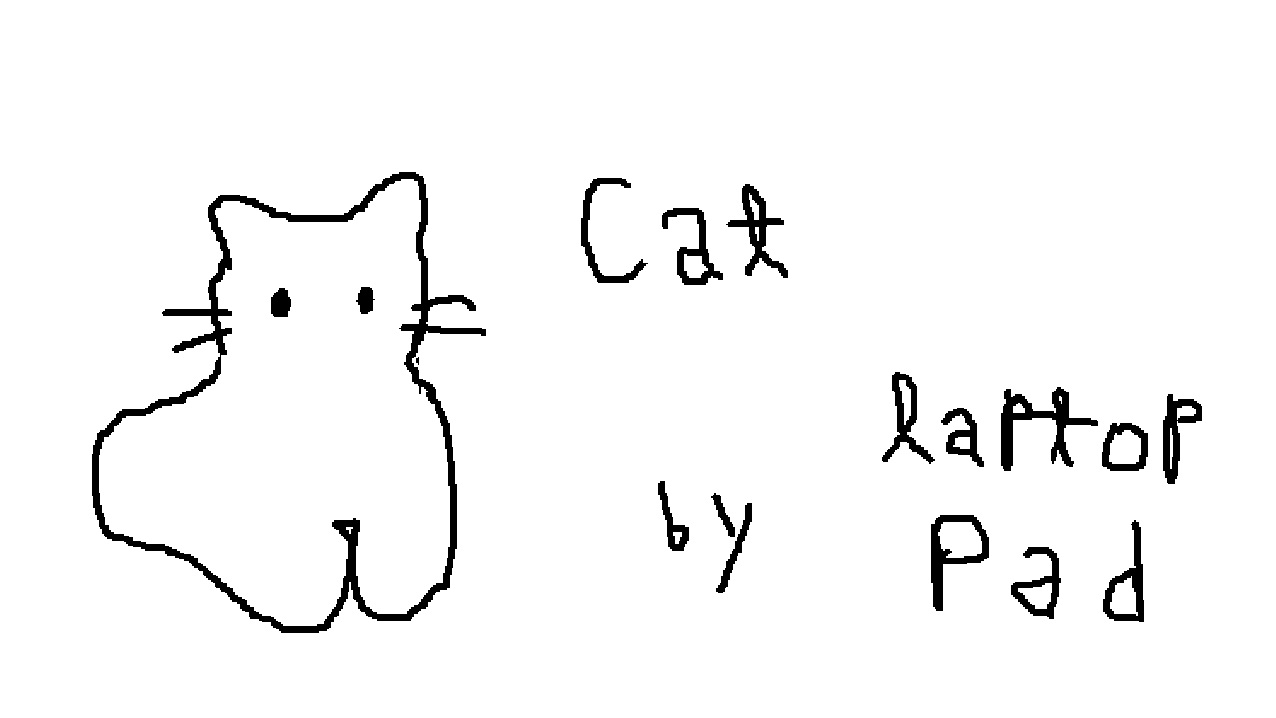 Cat
by
laptop
Pad